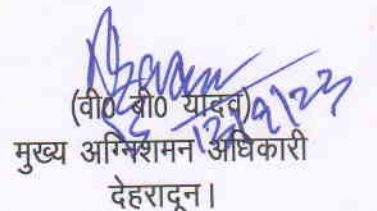 (वी0 बी0 यादव)
मुख्य अग्निशमन अधिकारी
देहरादून।